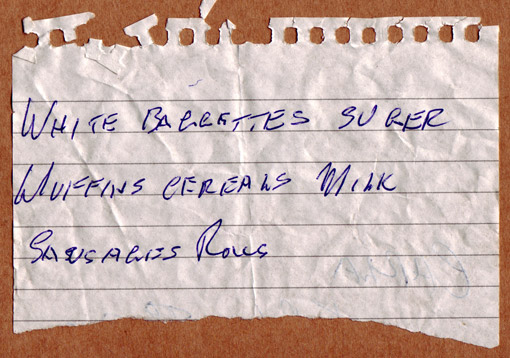 WHITE BAGGETTES SUGER
MUFFINS CEREALS MILK
SAUSAGES ROLLS